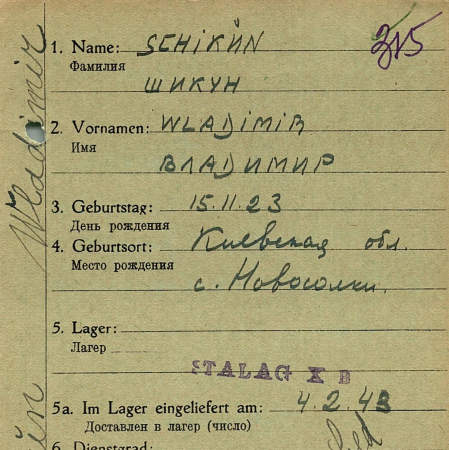 315
1. Name: SCHIKÜN
Фамилия
ШИКУН
2. Vornamen: WLADIMIR
Имя
ВЛАДИМИР
3. Geburtstag: 15.11.23
День рождения
4. Geburtsort: Киевская обл.
Место рождения
с. Новоселки.
5. Lager:
Лагер
STALAG X B
5a. Im Lager eingeliefert am: 4.2.43
Доставлен в лагер (число)
6. Dienstgrad:
Wladimir